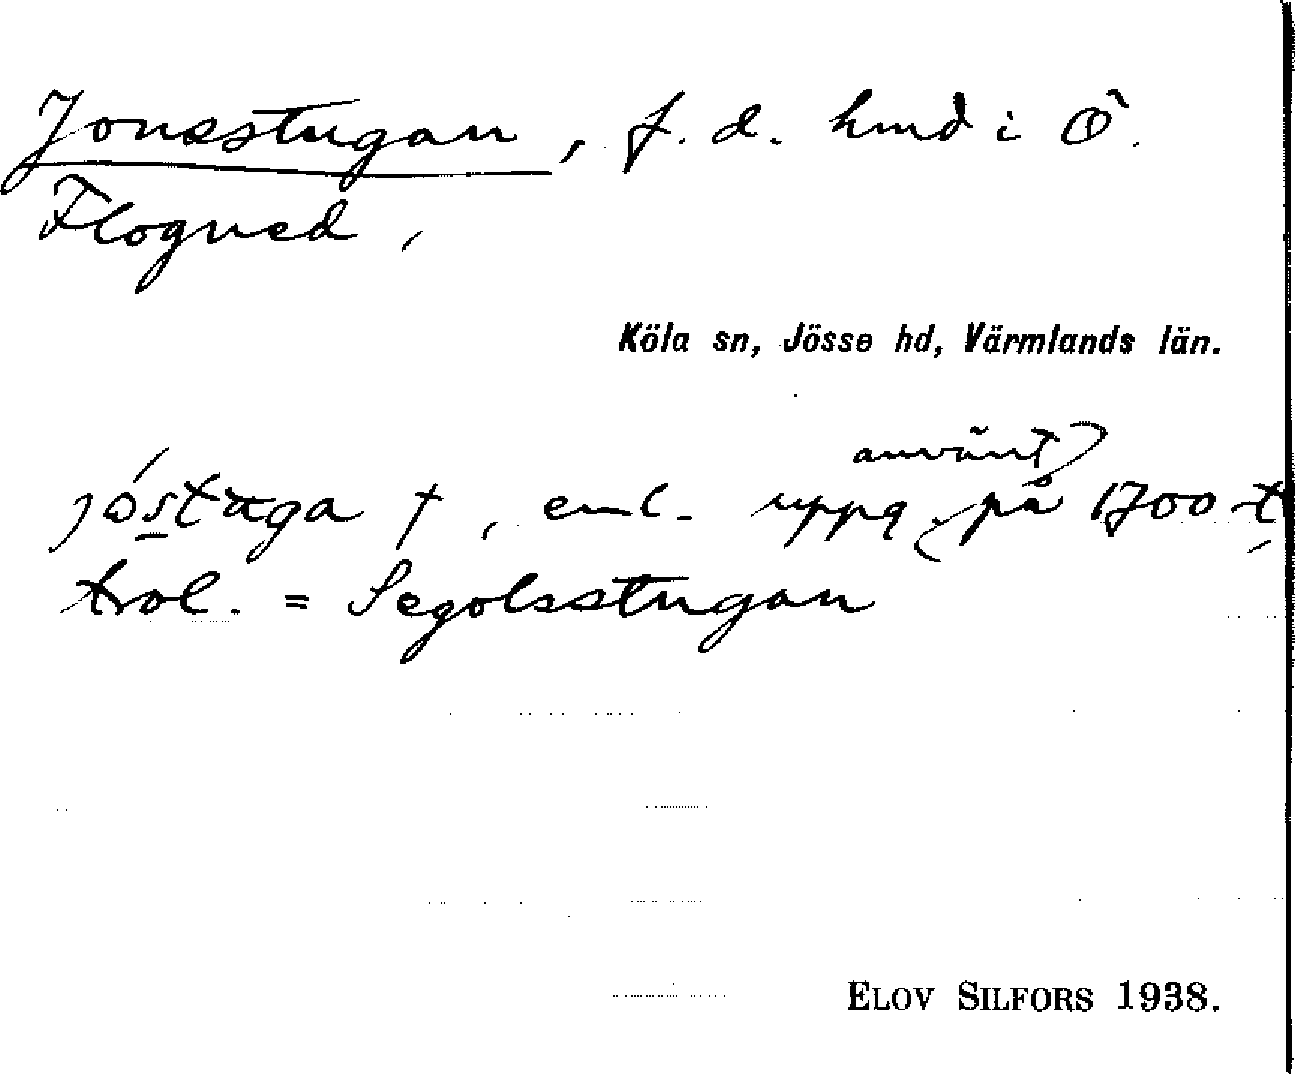 Jonsstugan, f. d. hmd i Ö.
Flogned,
Köla sn, Jösse hd, Värmlands län.
använt
jóstuga †, enl. uppg. på 1700 t
trol. = Segolsstugan
ELOV SILFORS 1938.